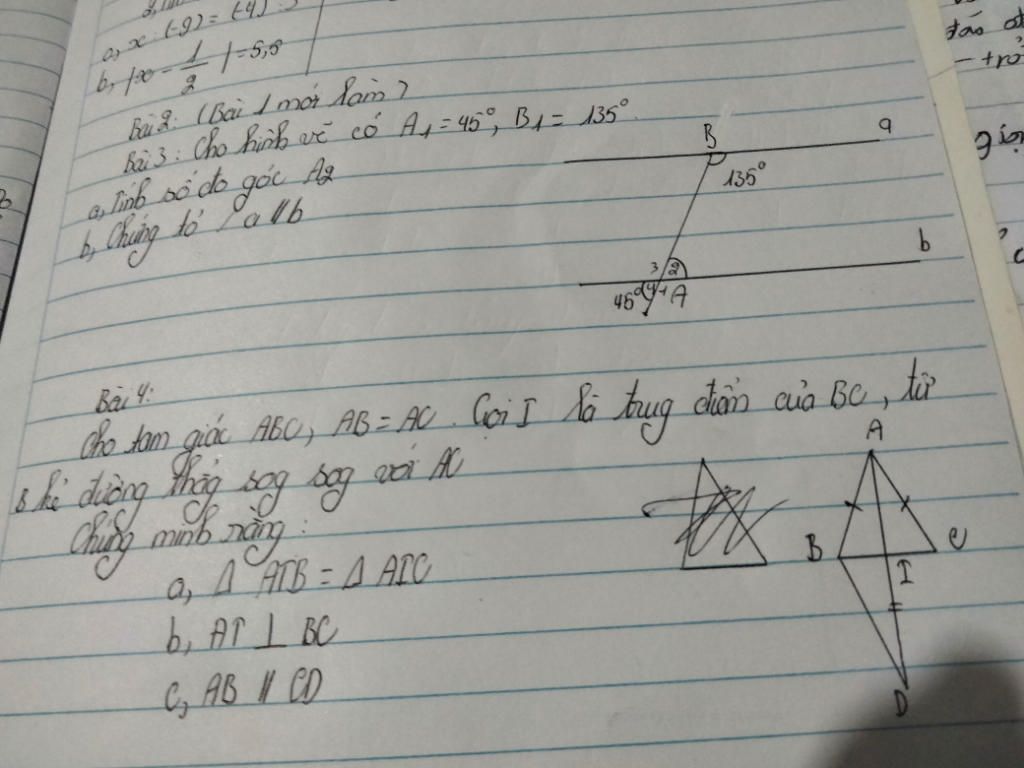 a, x : (-9) = (-4) :
b, |x - 1/2| = 5,5
Bài 2: (Bài 1 mới làm)
Bài 3: Cho hình vẽ có A1 = 45°, B1 = 135°.
a, Tính số đo góc A2
b, Chứng tỏ a // b
B
a
135°
b
3
2
45°
4
1
A
Bài 4:
Cho tam giác ABC, AB = AC. Gọi I là trug điểm của BC, từ
B kẻ đường thẳg sog sog với AC
Chứng minh rằng:
a, Δ AIB = Δ AIC
b, AI ⊥ BC
c, AB // CD
A
B
C
I
D